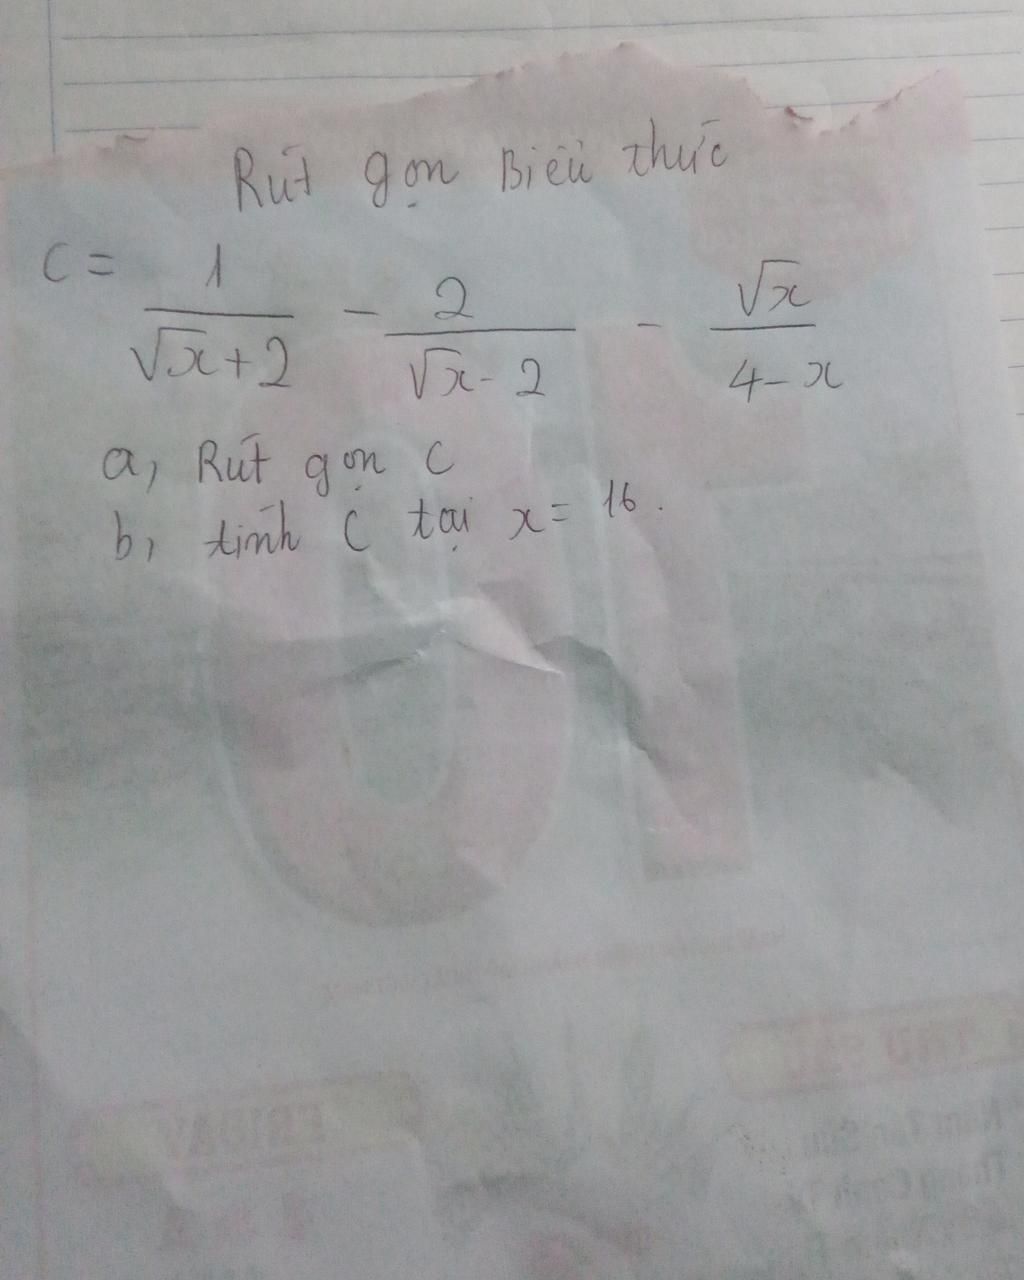 Rút gọn Biểu thức
C = 1/(√x + 2) - 2/(√x - 2) - √x/(4 - x)
a, Rút gọn C
b, tính C tại x = 16.